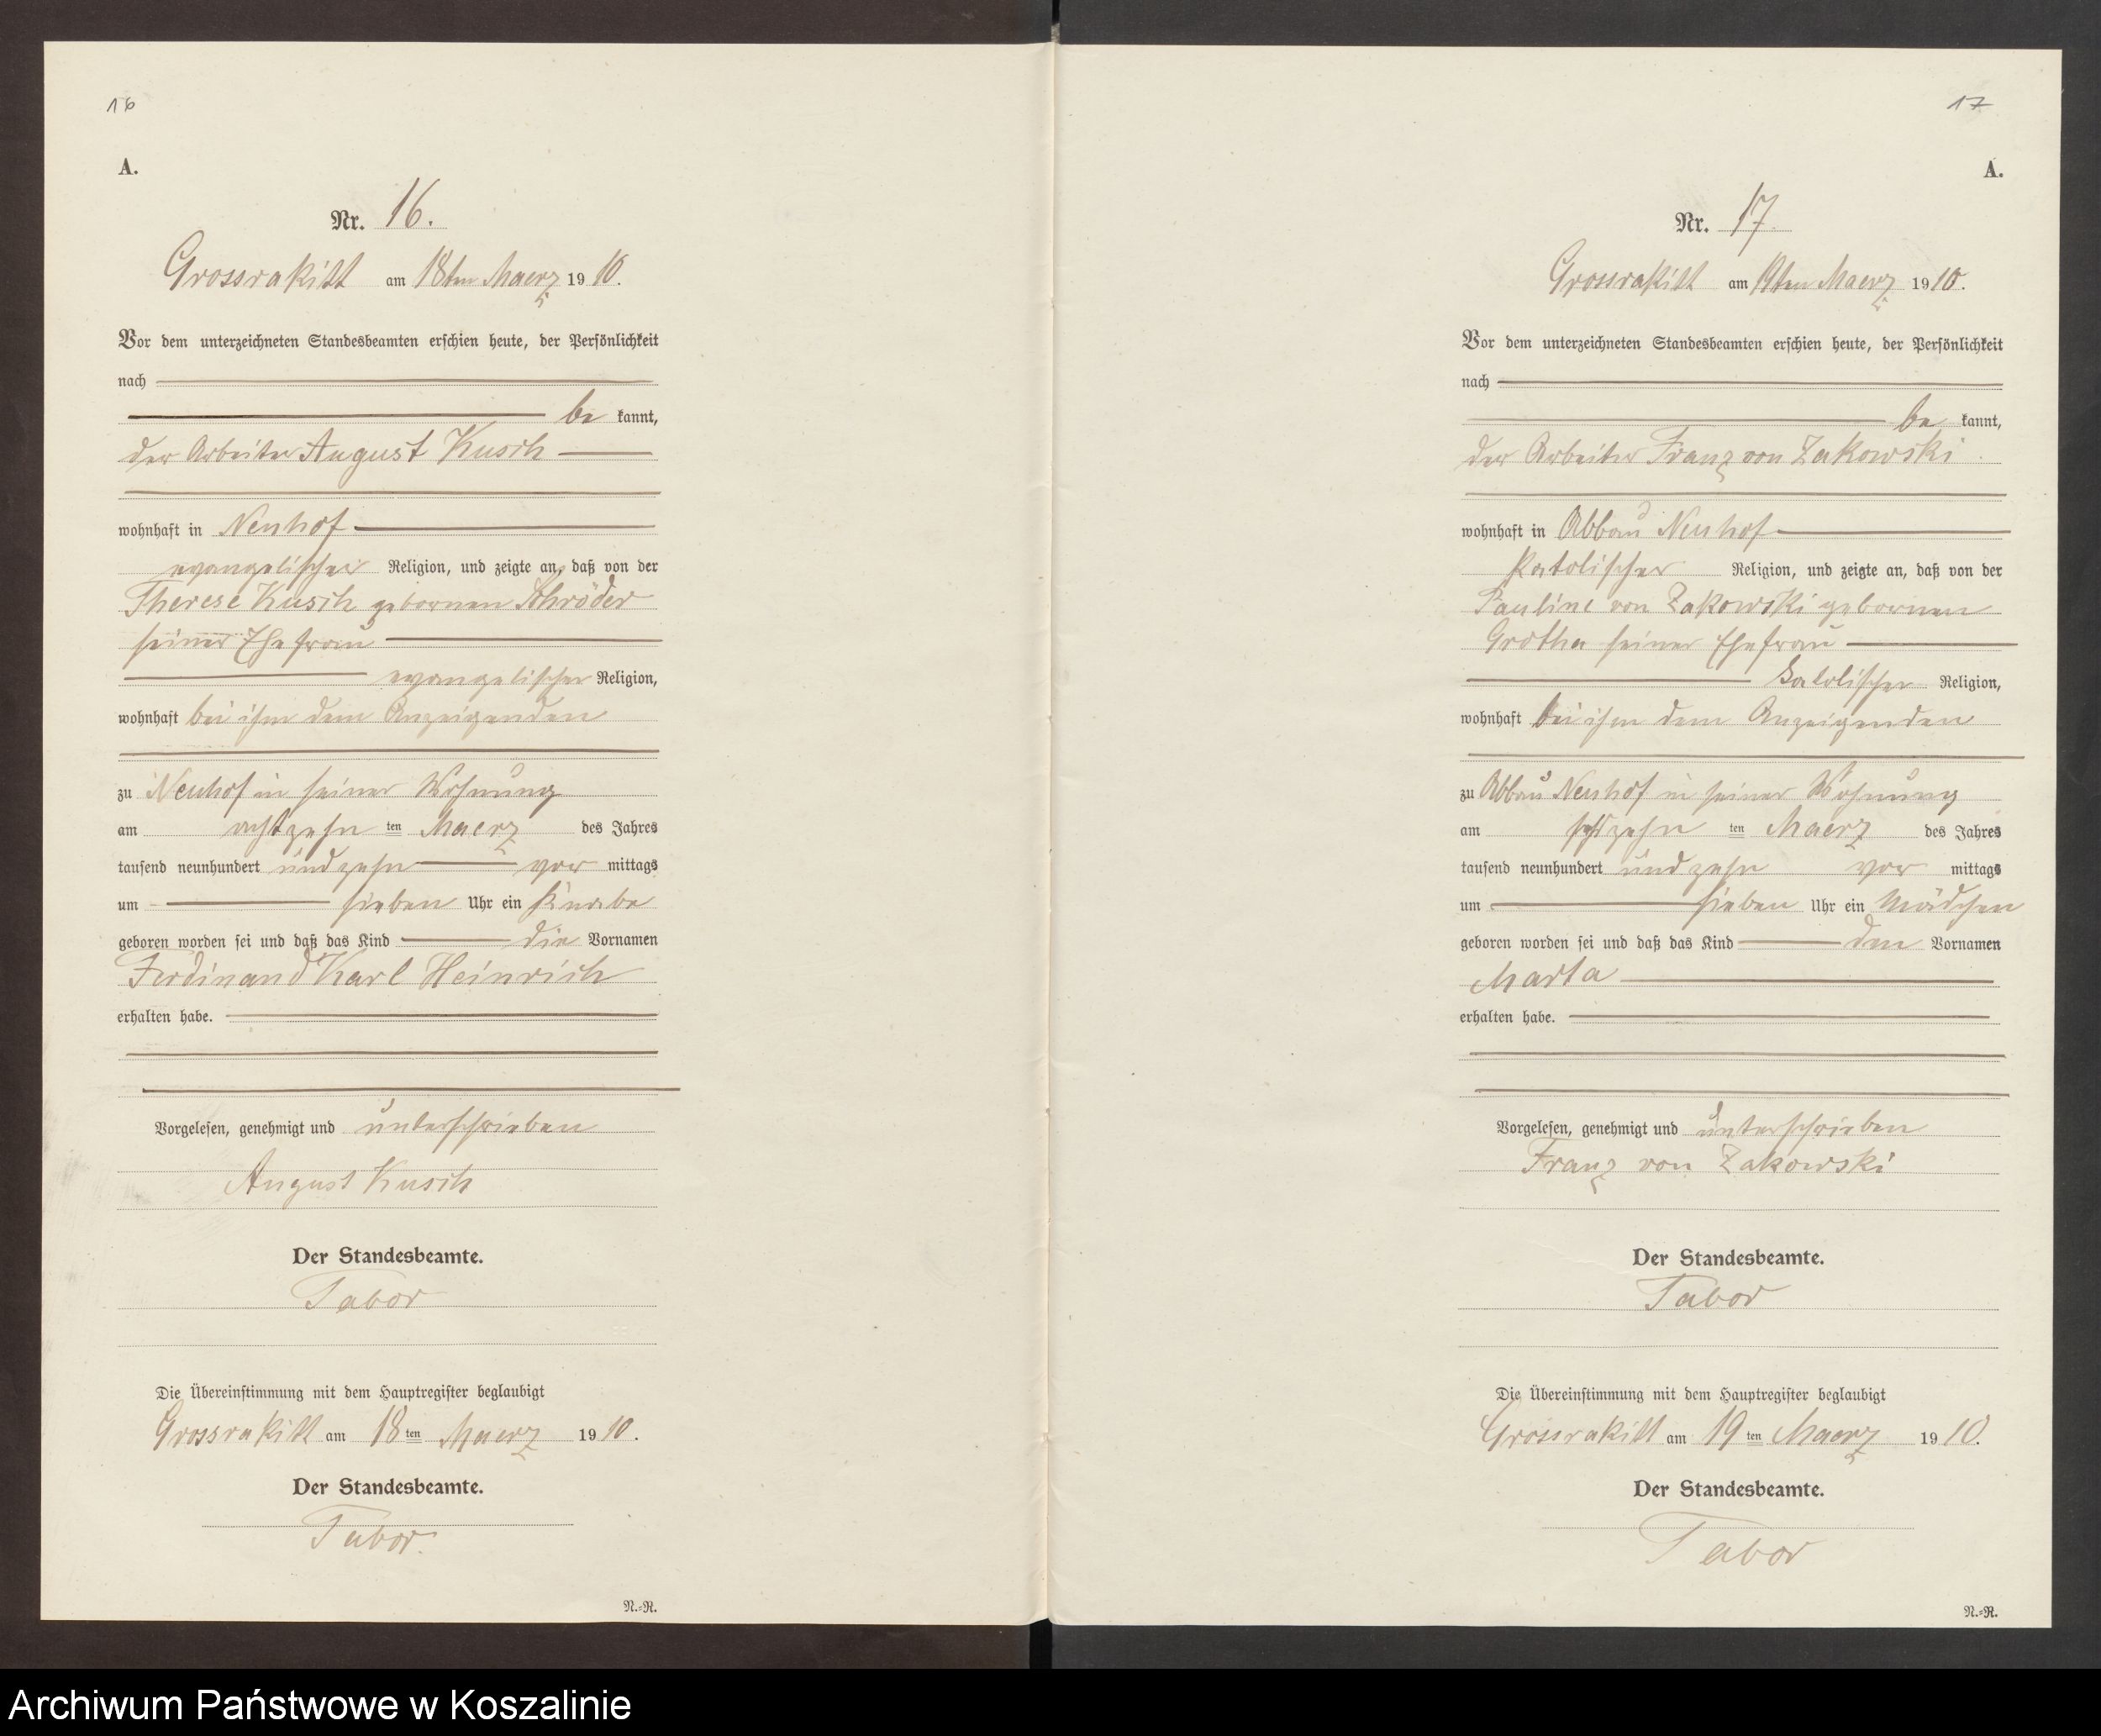 16
A.
Nr. 16.
Grossrakitt am 18ten Maerz 1910.
Vor dem unterzeichneten Standesbeamten erschien heute, der Persönlichkeit
nach
be kannt,
der Arbeiter August Kusch
wohnhaft in Neuhof
evangelischer Religion, und zeigte an, daß von der
Therese Kusch gebornen Schröder
seiner Ehefrau
evangelischer Religion,
wohnhaft bei ihm dem Anzeigenden
zu Neuhof in seiner Wohnung
am achtzehn ten Maerz des Jahres
tausend neunhundert und zehn vor mittags
um sieben Uhr ein Knabe
geboren worden sei und daß das Kind die Vornamen
Ferdinand Karl Heinrich
erhalten habe.
Vorgelesen, genehmigt und unterschrieben
August Kusch
Der Standesbeamte.
Tabor
Die Übereinstimmung mit dem Hauptregister beglaubigt
Grossrakitt am 18ten Maerz 1910.
Der Standesbeamte.
Tabor.
N.=R.
17
A.
Nr. 17.
Grossrakitt am 19ten Maerz 1910.
Vor dem unterzeichneten Standesbeamten erschien heute, der Persönlichkeit
nach
be kannt,
der Arbeiter Franz von Zakowski
wohnhaft in Abbau Neuhof
katolischer Religion, und zeigte an, daß von der
Pauline von Zakowski gebornen
Grotha seiner Ehefrau
katolischer Religion,
wohnhaft bei ihm dem Anzeigenden
zu Abbau Neuhof in seiner Wohnung
am ten Maerz des Jahres
tausend neunhundert und zehn vor mittags
um sieben Uhr ein Mädchen
geboren worden sei und daß das Kind den Vornamen
Marta
erhalten habe.
Vorgelesen, genehmigt und unterschrieben
Franz von Zakowski
Der Standesbeamte.
Tabor
Die Übereinstimmung mit dem Hauptregister beglaubigt
Grossrakitt am 19ten Maerz 1910.
Der Standesbeamte.
Tabor
N.=R.
Archiwum Państwowe w Koszalinie